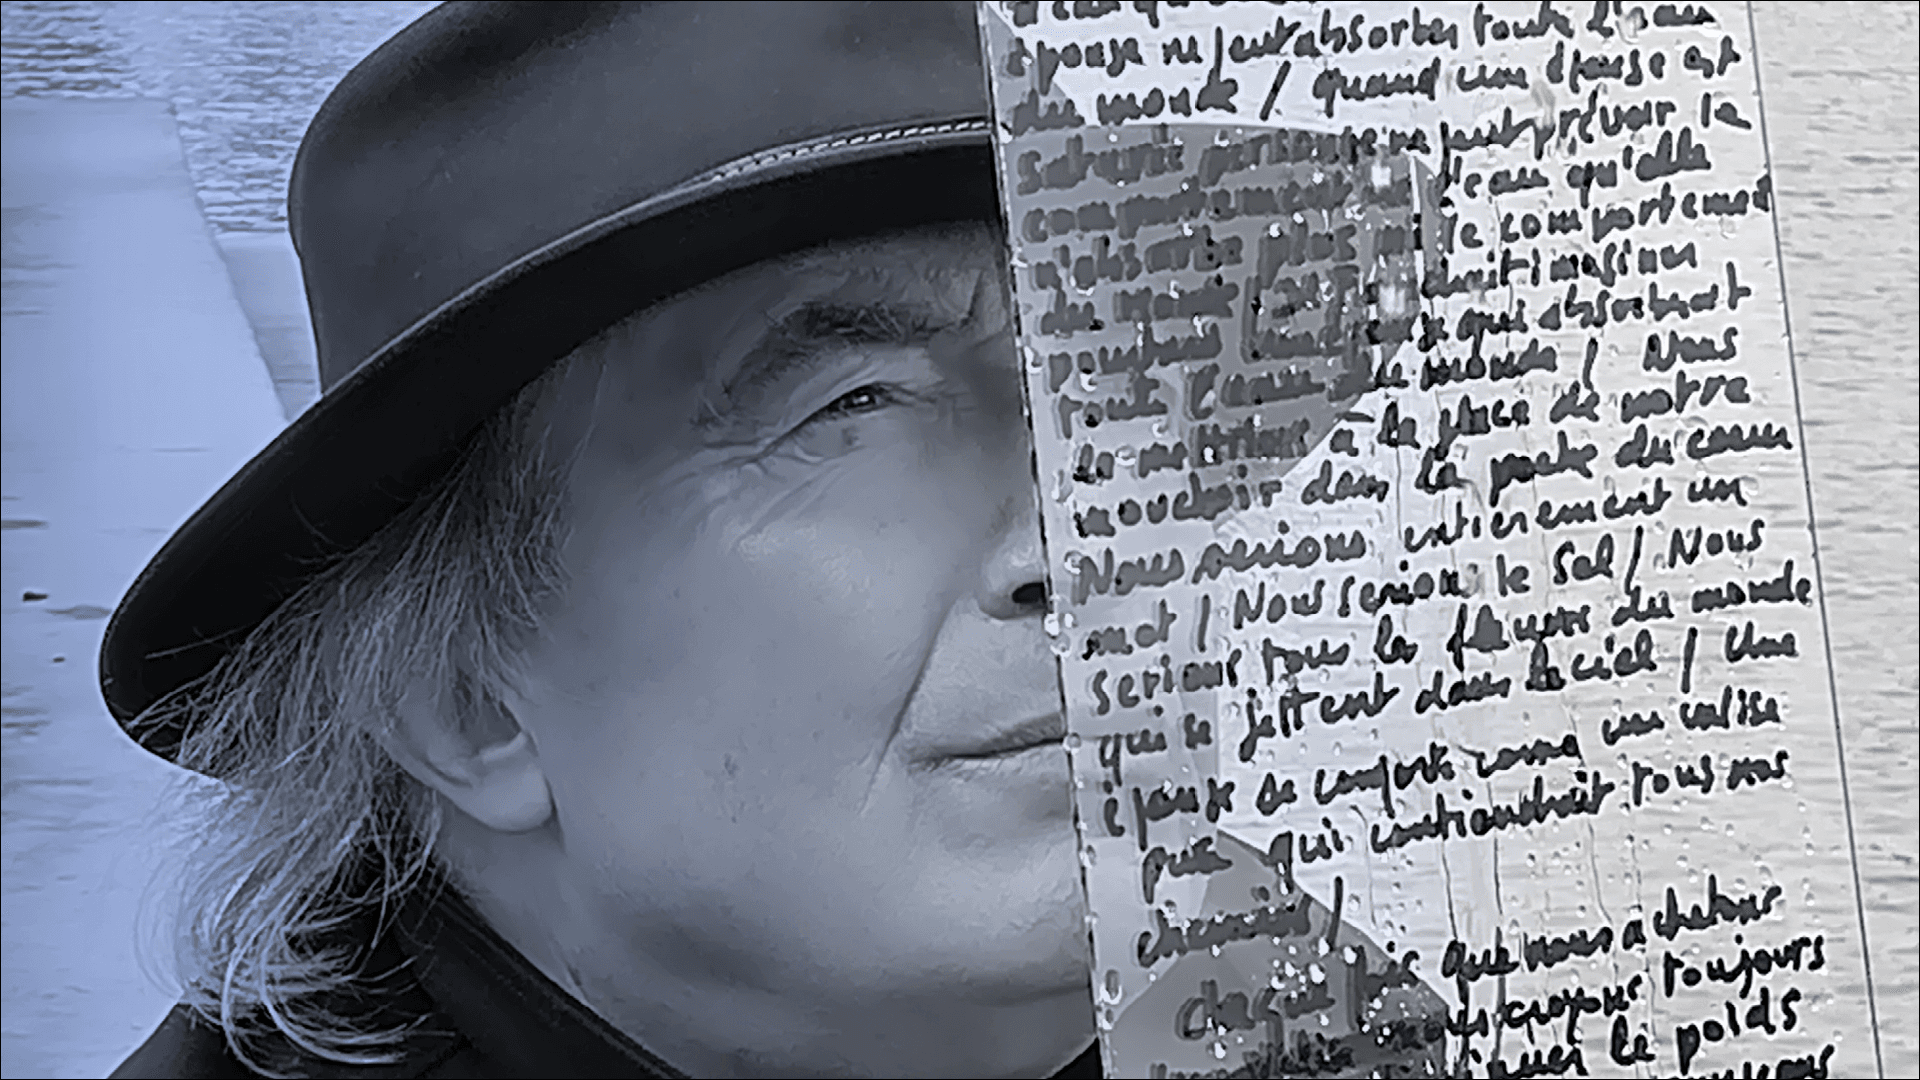 éponge ne peut absorber toute l'eau
du monde / quand une éponge est
saturée personne ne peut prévoir le
comportement de l'eau qu'elle
n'absorbe plus ni le comportement
du monde / on imagine
pourtant une éponge qui absorberait
toute l'eau du monde / Nous
la mettrions à la place de notre
mouchoir dans la poche du cœur
Nous serions entièrement un
mot / Nous serions le sel / Nous
serions tous les fleuves du monde
qui se jettent dans le ciel / Une
éponge de comme une valise
qui contiendrait tous nos
chemins /
Chaque fois que nous achetons
nous croyons toujours
le poids